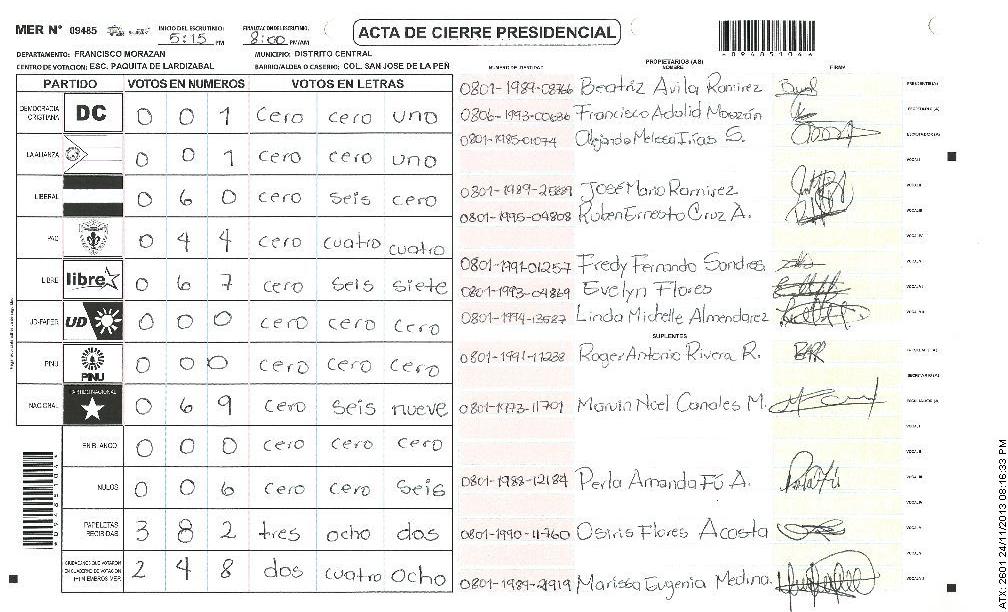 MER N° 09485 INICIO DEL ESCRUTINIO: 5:15 PM FINALIZACION DEL ESCRUTINIO: 8:00 PM/AM
ACTA DE CIERRE PRESIDENCIAL
DEPARTAMENTO: FRANCISCO MORAZAN MUNICIPIO: DISTRITO CENTRAL
CENTRO DE VOTACION: ESC. PAQUITA DE LARDIZABAL BARRIO/ALDEA O CASERIO: COL. SAN JOSE DE LA PEÑ
PARTIDO VOTOS EN NUMEROS VOTOS EN LETRAS
DEMOCRACIA CRISTIANA DC 0 0 1 cero cero uno
LA ALIANZA 0 0 1 cero cero uno
LIBERAL 0 6 0 cero seis cero
PAC 0 4 4 cero cuatro cuatro
LIBRE libre 0 6 7 cero seis siete
UD-FAPER UD 0 0 0 cero cero cero
PINU PINU 0 0 0 cero cero cero
NACIONAL PARTIDO NACIONAL 0 6 9 cero seis nueve
EN BLANCO 0 0 0 cero cero cero
NULOS 0 0 6 cero cero seis
PAPELETAS RECIBIDAS 3 8 2 tres ocho dos
CIUDADANOS QUE VOTARON EN CUADERNO DE VOTACION (+) MIEMBROS MER 2 4 8 dos cuatro ocho
NUMERO DE IDENTIDAD PROPIETARIOS (AS) NOMBRE FIRMA
0801-1989-08766 Beatriz Avila Ramirez PRESIDENTE (A)
0806-1993-00636 Francisco Adalid Morazán SECRETARIO (A)
0801-1985-01074 Alejandro Melissa Irías S. ESCRUTADOR (A)
VOCAL I
0801-1989-25889 José Mario Ramirez VOCAL II
0801-1995-04808 Ruben Ernesto Cruz A. VOCAL III
VOCAL IV
0801-1991-01257 Fredy Fernando Sandres VOCAL V
0801-1993-04869 Evelyn Flores
0801-1994-13587 Linda Michelle Almendarez
SUPLENTES
0801-1991-11238 Roger Antonio Rivera R.
0801-1973-11701 Marvin Noel Canales M.
0801-1988-12184 Perla Amanda Fú A.
0801-1990-11760 Osiris Flores Acosta
0801-1989-21919 Marissa Eugenia Medina.
ATX: 2601 24/11/2013 08:16:33 PM